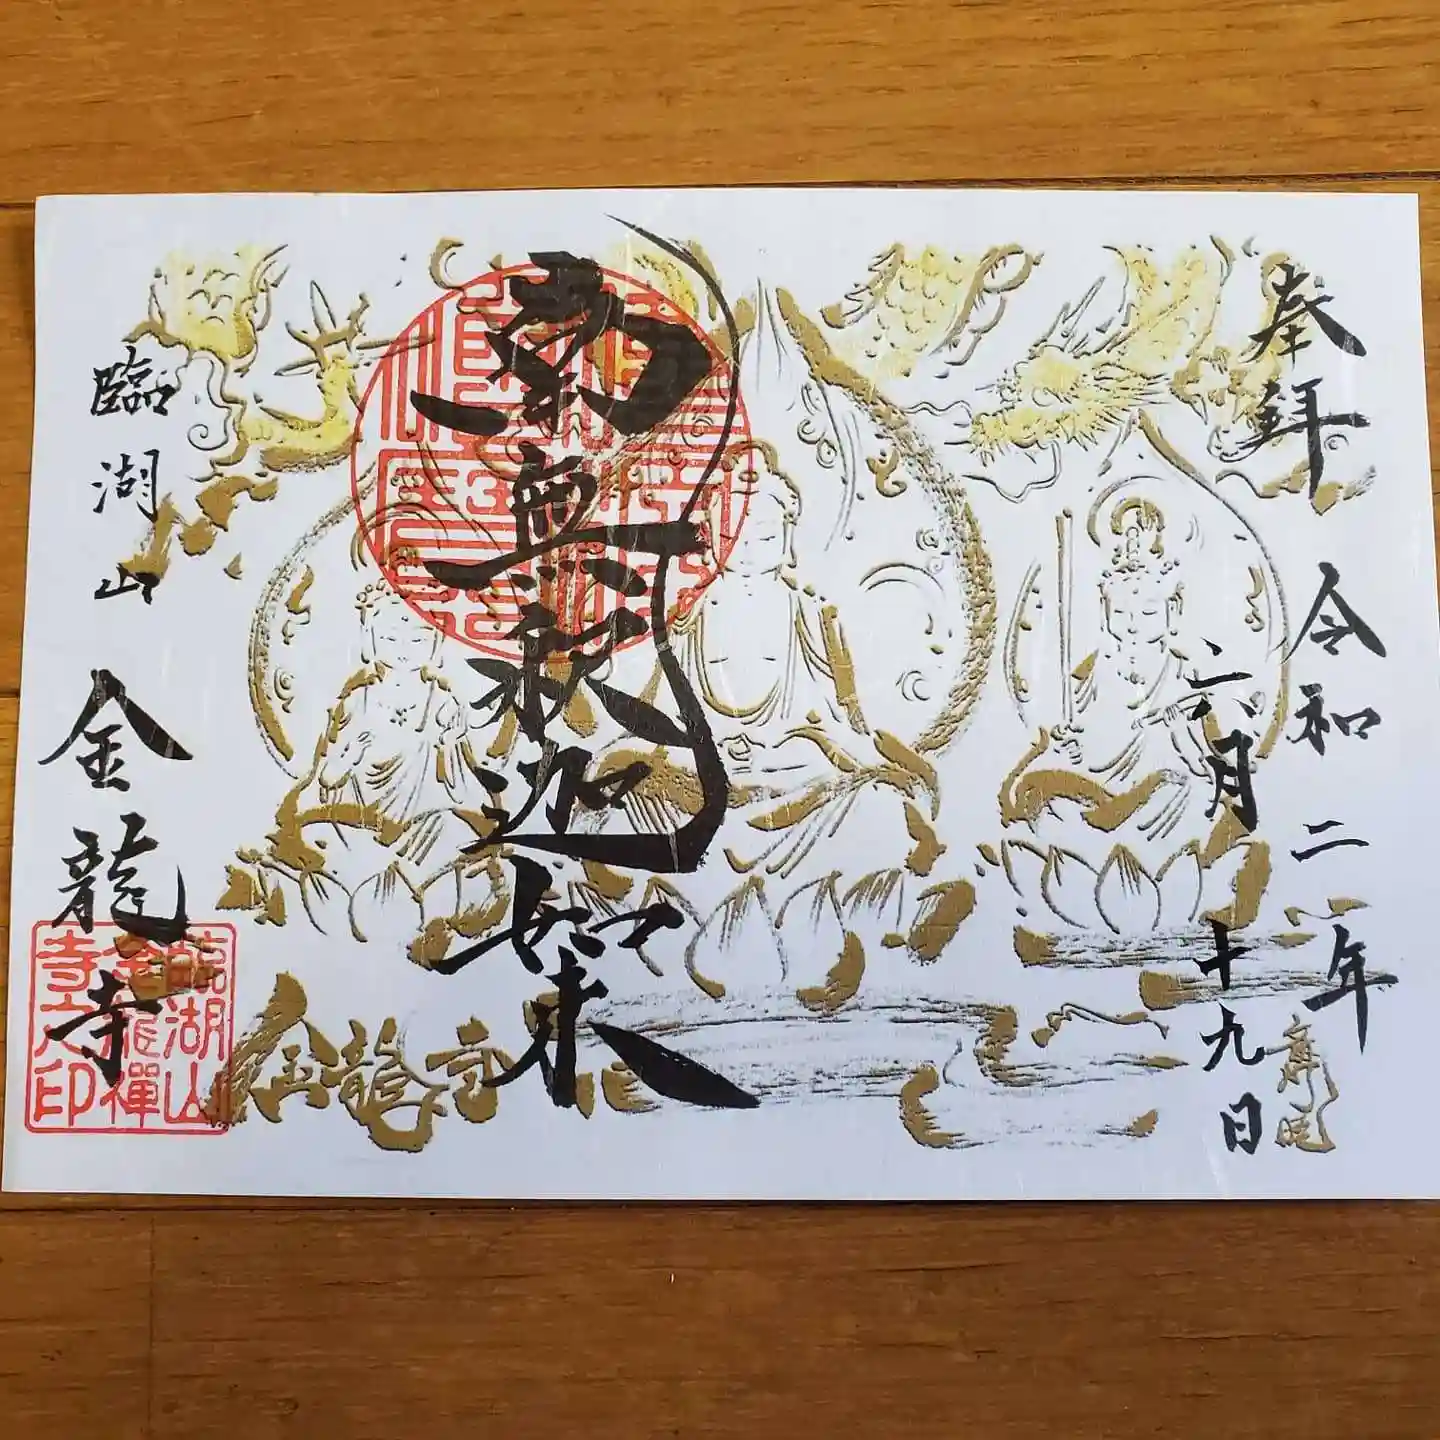 奉拝
令和二年
六月十九日
南無釈迦如来
臨湖山
金龍寺
臨湖山
金龍禅
寺之印
金龍寺